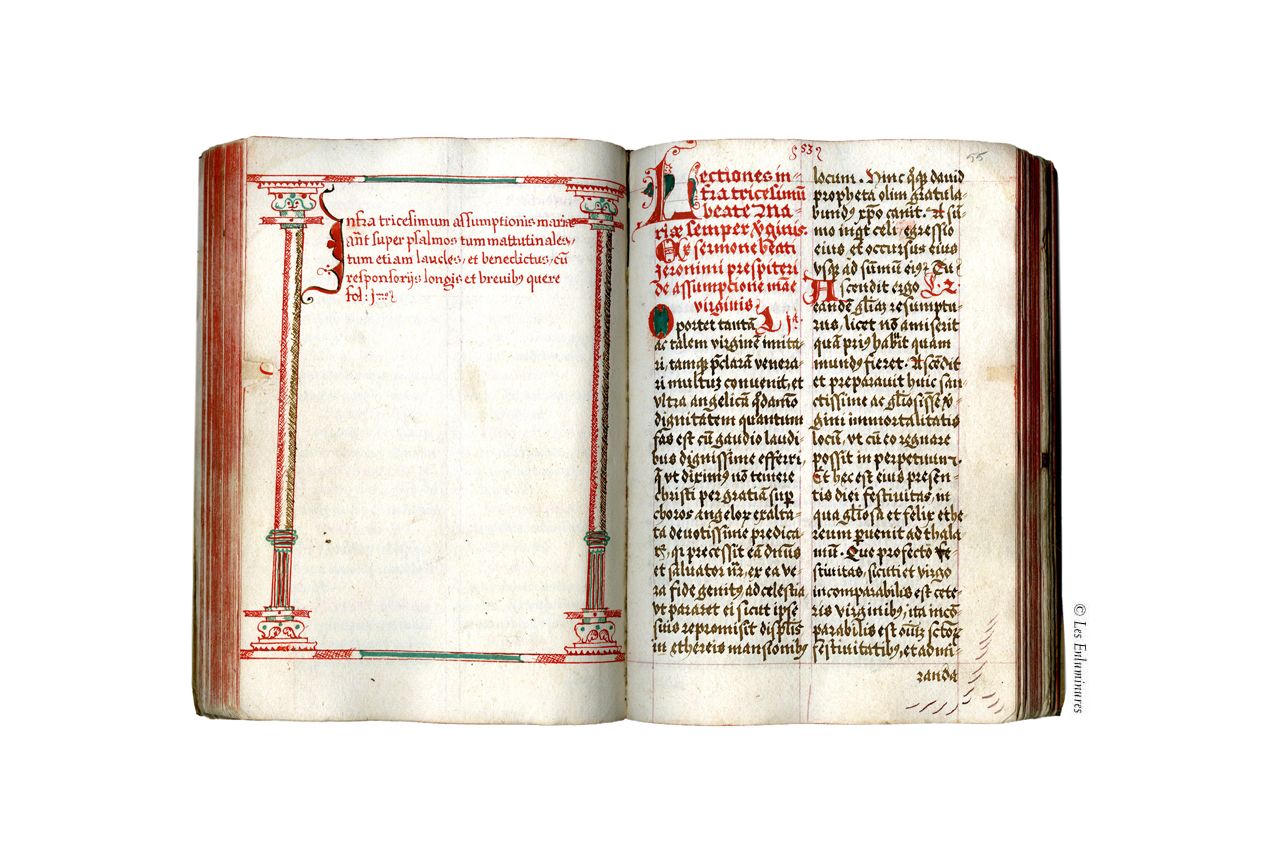 Infra tricesimum assumptionis mariæ
añt super psalmos tum mattutinales,
tum etiam laudes, et benedictus, cũ
responsorijs longis et brevibꝰ quere
fol:
53
55
Lectiones in-
fra tricesimũ
beate Ma
riæ semper Vginis.
Ex sermone beati
Jeronimi prespiteri
de assumptione mãe
virginis.
Oportet tautã L ja.
ac talem virginẽ imita-
ri, tamqꝫ p̃clarã venera-
ri multuꝫ convenit, et
vltra angelicã q̃damõ
dignitatem quantum
fas est cũ gaudio laudi-
bus dignissime efferri,
q̃ vt diximꝰ nõ temere
christi per gratiã sup
choros angeloꝝ exalta-
ta devotissime predica-
tr̃, qi precessit eã dñus
et salvator nr̃, ex ea ve-
ra fide genitꝰ ad celestia
vt pararet ei sicut ipse
suis repromisit displis
in ethereis mansionibꝰ
locum. Hinc q̃qꝫ david
propheta olim gratula-
bundꝰ xp̃o canit. A sũ-
mo inqt celi egressio
eius, et occursus eius
vsqꝫ ad sũmũ eiꝰ. Tu
Ascendit ergo L 2.
eandẽ gl̃iaꝫ resumptu-
rus, licet nõ amiserit
quã priꝰ habꝉt quam
mundꝰ fieret. Ascẽdit
et preparavit huic san-
ctissime ac gl̃osisse v-
gini immortalitatis
locũ, vt cũ eo regnare
possit in perpetuum.
Et hec est eius presen-
tis diei festivitas, in
qua gl̃iosa et felix ethe-
reum puenit ad thala-
mũ. Que profecto fe-
stivitas, sicuti et virgo
incomparabilis est cete-
ris virginibꝰ, ita incõ-
parabilis est oĩuꝫ sctoꝝ
festivitatibꝰ, et admi-
randa
© Les Enluminures